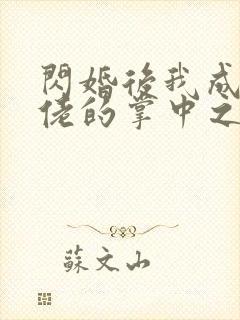 閃婚後我成
佬的掌中之
蘇文山